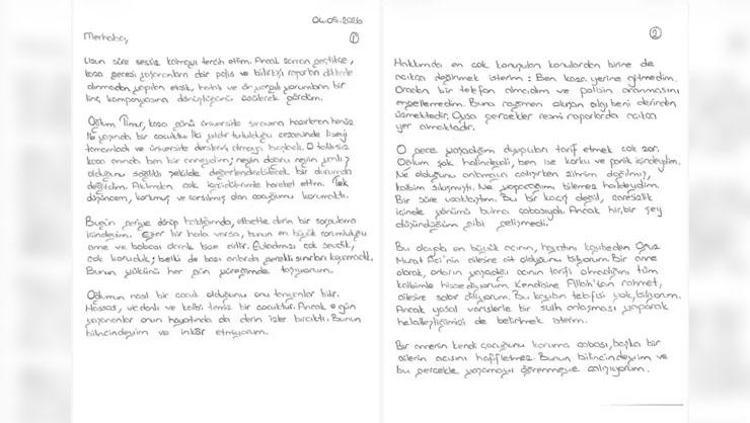 04.05.2026
Merhaba,
1
Uzun süre sessiz kalmayı tercih ettim. Ancak zaman geçtikçe,
kaza gecesi yaşananlara dair polis ve bilirkişi raporları dikkate
alınmadan yapılan eksik, hatalı ve ön yargılı yorumların bir
linç kampanyasına dönüştüğünü üzülerek gördüm.
Oğlum Timur, kaza günü üniversite sınavına hazırlanan henüz
yaşında bir çocuktu. İki yıldır tutulduğu cezaevinde liseyi
tamamladı ve üniversite derslerini almaya başladı. O talihsiz
kaza anında ben bir anneydim; neyin doğru neyin yanlış
olduğunu sağlıklı şekilde değerlendirebilecek bir durumda
değildim. Aklımdan çok içgüdülerimle hareket ettim. Tek
düşüncem, korkmuş ve sarsılmış olan çocuğumu korumaktı.
Bugün geriye dönüp baktığımda, elbette derin bir sorgulama
içindeyim. Eğer bir hata varsa, bunun en büyük sorumluluğu
anne ve babası olarak bize aittir. Evladımızı çok sevdik,
çok koruduk; belki de bazı anlarda gerekli sınırları koyamadık.
Bunun yükünü her gün yüreğimde taşıyorum.
Oğlumun nasıl bir çocuk olduğunu onu tanıyanlar bilir.
Hassas, vicdanlı ve kalbi temiz bir çocuktur. Ancak o gün
yaşananlar onun hayatında da derin izler bıraktı. Bunun
bilincindeyim ve inkâr etmiyorum.
2
Hakkımda en çok konuşulan konulardan birine de
açıkça değinmek isterim: Ben kaza yerine gitmedim.
Oradan bir telefon almadım ve polisin aranmasını
engellemedim. Buna rağmen oluşan algı beni derinden
üzmektedir. Oysa gerçekler resmi raporlarda açıkça
yer almaktadır.
O gece yaşadığım duyguları tarif etmek çok zor.
Oğlum şok halindeydi, ben ise korku ve panik içindeydim.
Ne olduğunu anlamaya çalışırken zihnim dağılmış,
kalbim sıkışmıştı. Ne yapacağımı bilemez haldeydim.
Bir süre uzaklaştım. Bu bir kaçış değil, çaresizlik
içinde yönümü bulma çabasıydı. Ancak hiçbir şey
düşündüğüm gibi gelişmedi.
Bu olayda en büyük acının, hayatını kaybeden Oğuz
Murat Aci'nin ailesine ait olduğunu biliyorum. Bir anne
olarak, onların yaşadığı acının tarifi olmadığını tüm
kalbimle hissediyorum. Kendisine Allah'tan rahmet,
ailesine sabır diliyorum. Bu kaybın telafisi yok, biliyorum.
Ancak yasal varislerle bir sulh anlaşması yaparak
helalleştiğimizi de belirtmek isterim.
Bir annenin kendi çocuğunu koruma çabası, başka bir
ailenin acısını hafifletmez. Bunun bilincindeyim ve
bu gerçekle yaşamayı öğrenmeye çalışıyorum.